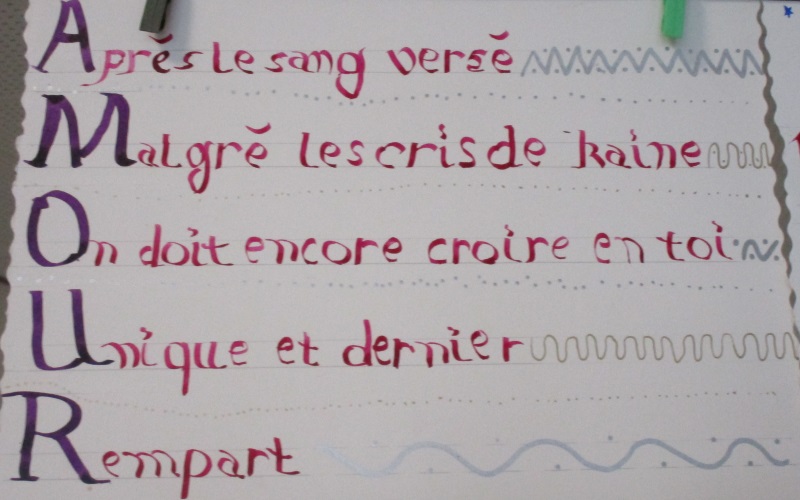 Après le sang versé
Malgré les cris de haine
On doit encore croire en toi
Unique et dernier
Rempart